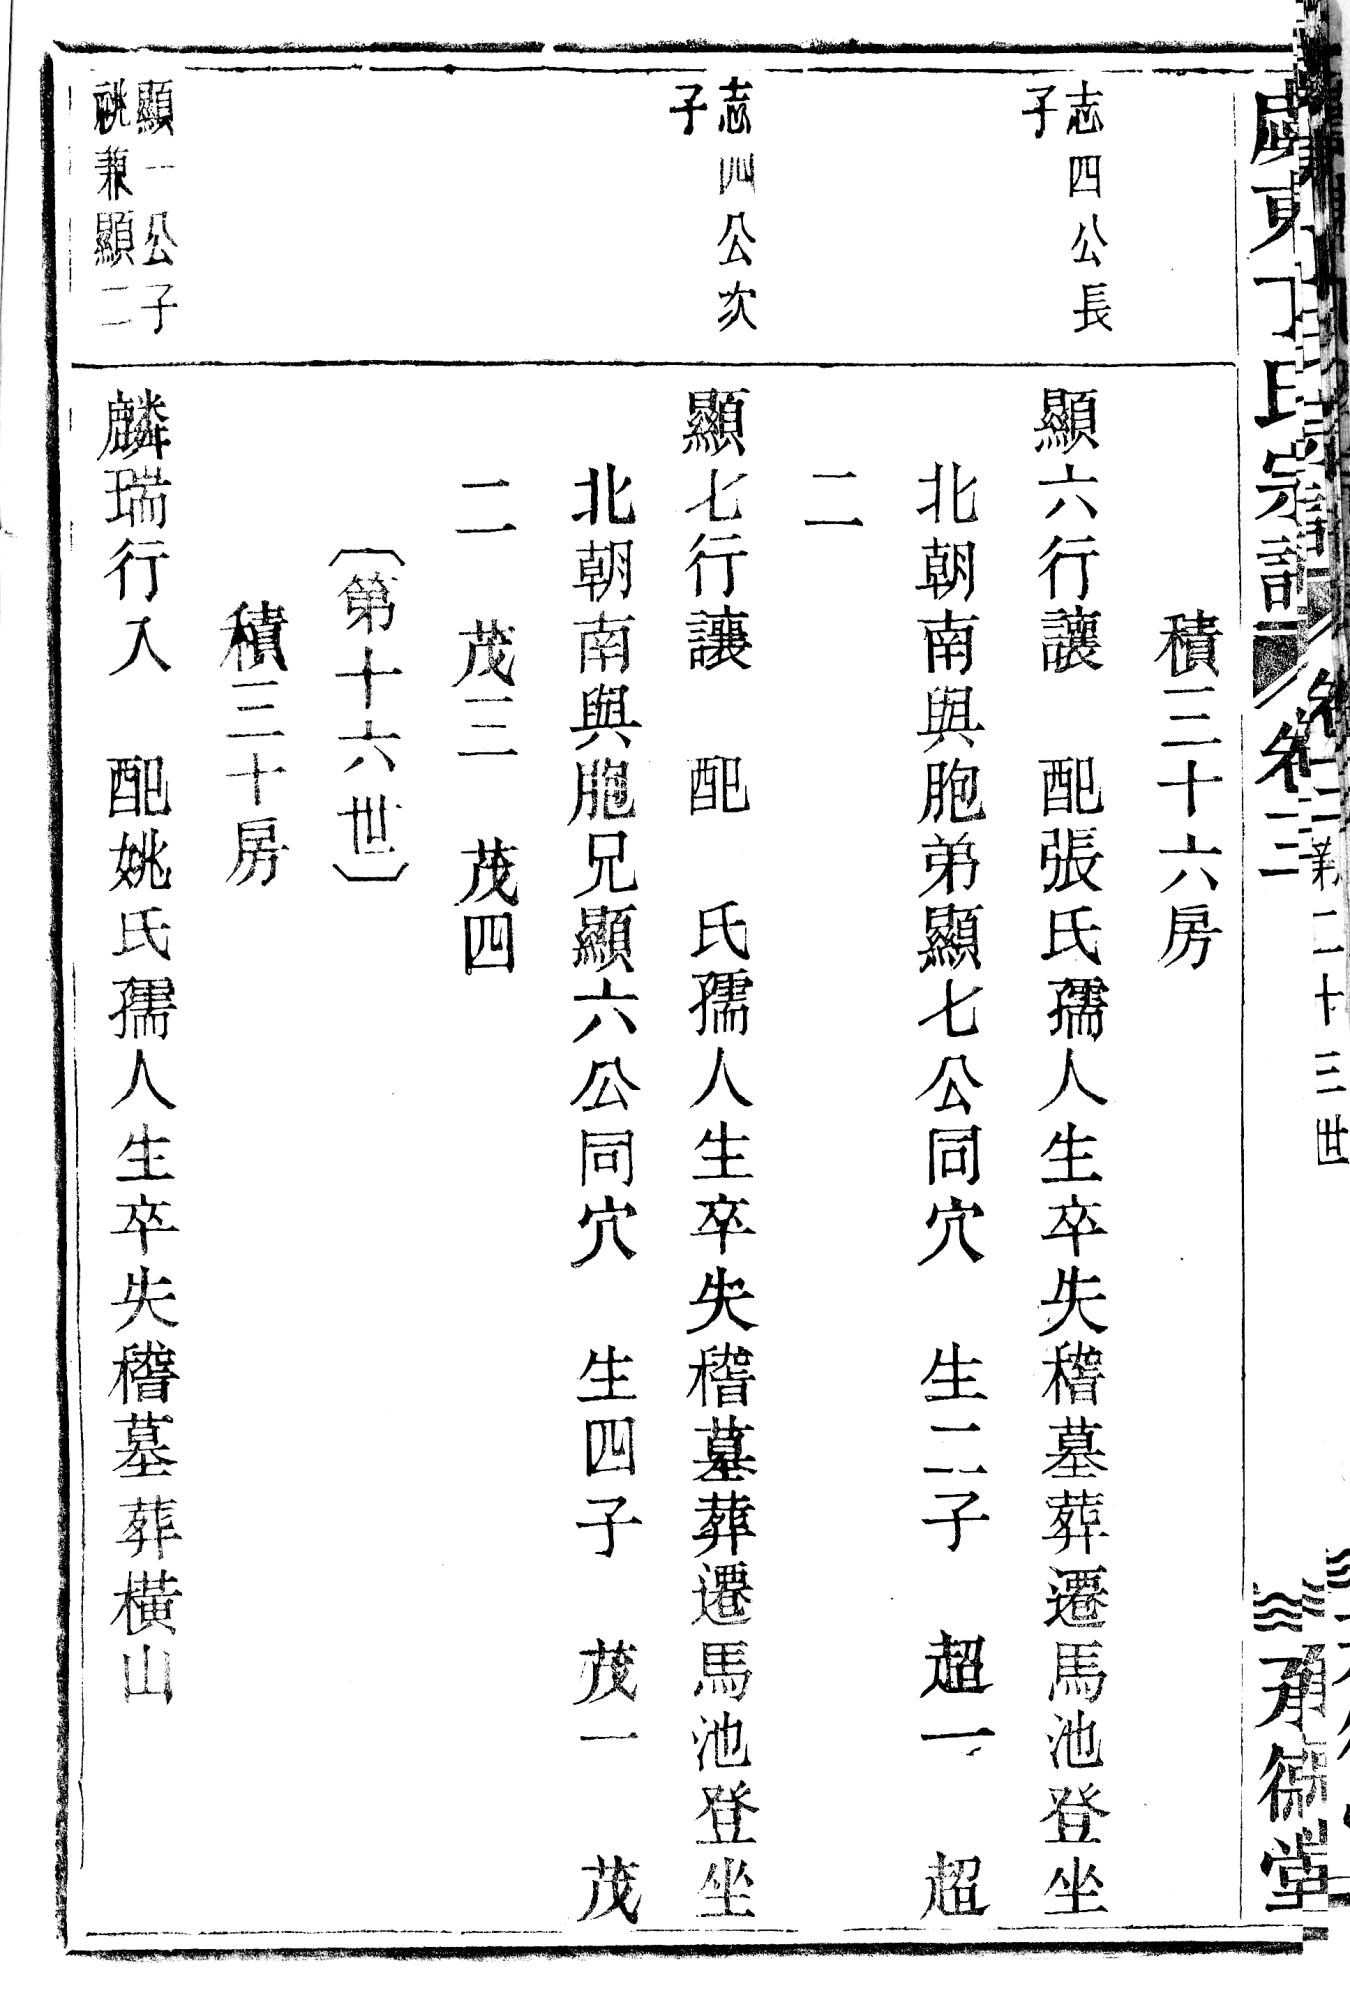 東丁氏宗譜
卷三
承德堂
積三十六房
志四公長
子
顯六行讓　配張氏孺人生卒失稽墓葬遷馬池登坐
北朝南與胞弟顯七公同穴　生二子　超一　超
二
志四公次
子
顯七行讓　配　氏孺人生卒失稽墓葬遷馬池登坐
北朝南與胞兄顯六公同穴　生四子　茂一　茂
二　茂三　茂四
〔第十六世〕
積三十房
顯一公子
祧兼顯二
麟瑞行入　配姚氏孺人生卒失稽墓葬橫山